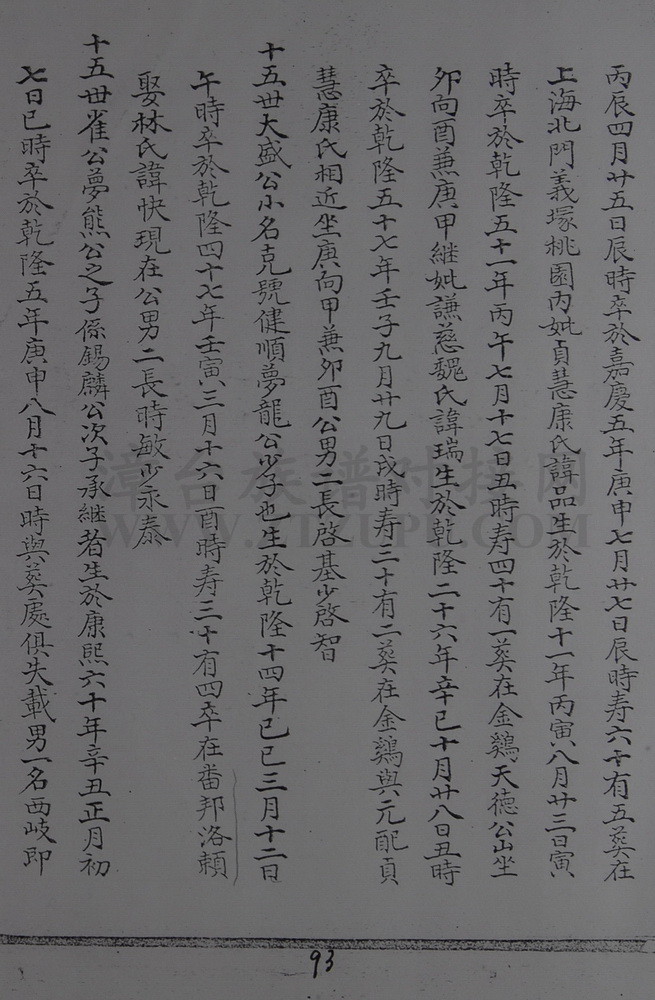 丙辰四月廿五日辰時卒於嘉慶五年庚申七月廿七日辰時寿六十有五葵在
上海北門義塚桃園內妣貞慧康氏諱品生於乾隆十一年丙寅八月廿三日寅
時卒於乾隆五十一年丙午七月十七日丑時寿四十有一葵在金鷄天德公山坐
夘向酉兼庚甲継妣謙慈魏氏諱瑞生於乾隆二十六年辛巳十月廿八日丑時
卒於乾隆五十七年壬子九月廿九日戌時寿三十有二葵在金鷄與元配貞
慧康氏相近坐庚向甲兼夘酉公男二長啓基少啓智
十五世大盛公小名克號健順夢龍公少子也生於乾隆十四年己巳三月十二日
午時卒於乾隆四十七年壬寅三月十六日酉時寿三十有四卒在番邦洛頼
娶林氏諱快現在公男二長時敏少永泰
十五世雀公夢熊公之子係錫麟公次子承継者生於康熙六十年辛丑正月初
七日巳時卒於乾隆五年庚申八月十六日時與葵處俱失載男一名西岐即
93
漳台族譜对接网
WWW.ZTZUPU.COM